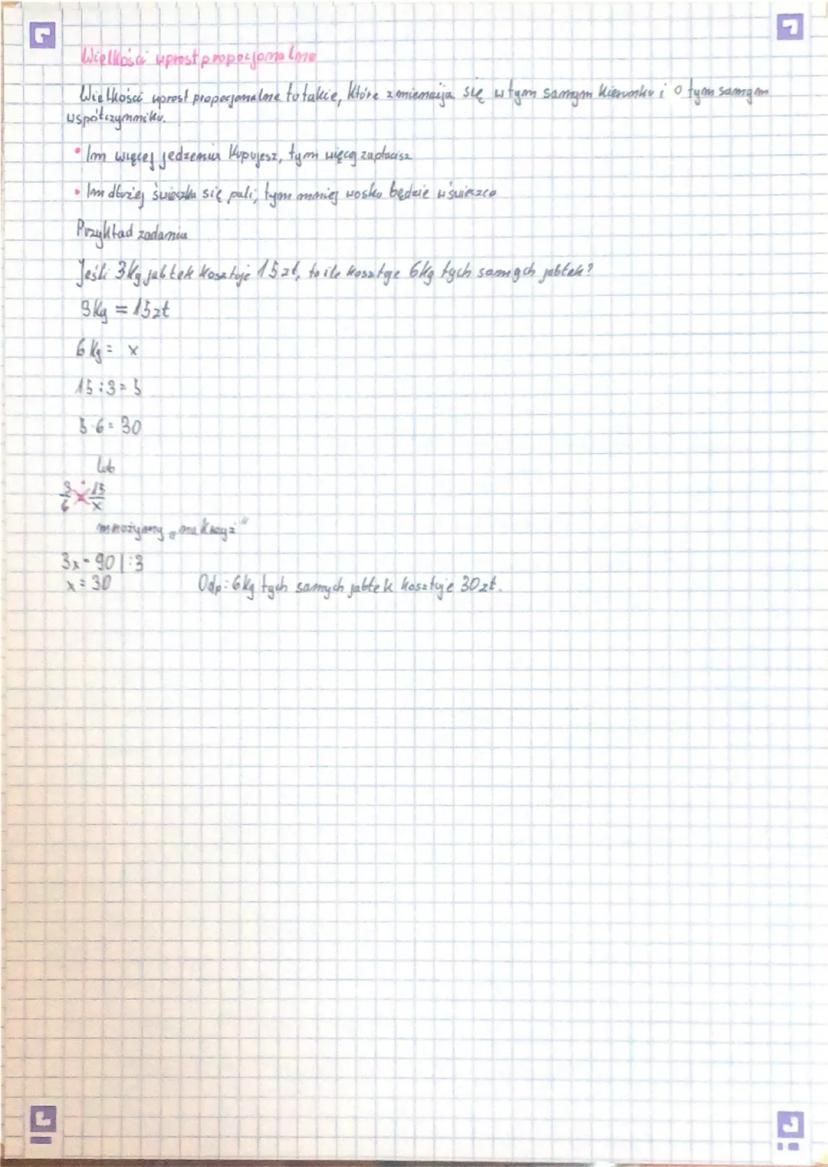 Wielkości wprost propocjonalne
Wielkości wprost propocjonalne to takie, które zmieniają się w tym samym kierunku i o tym samym
współczynniku.
• Im więcej jedzenia kupujesz, tym więcej zapłacisz
• Im dłużej świeczka się pali, tym mniej wosku będzie w świeczce
Przykład zadania
Jeśli 3kg jabłek kosztuje 15zł, to ile kosztuje 6kg tych samych jabłek?
3kg = 15zł
6kg = x
15:3=5
5·6=30
lub
3/6 = 15/x
mnożymy „na krzyż"
3x=90 |:3
x=30 Odp: 6kg tych samych jabłek kosztuje 30zł.